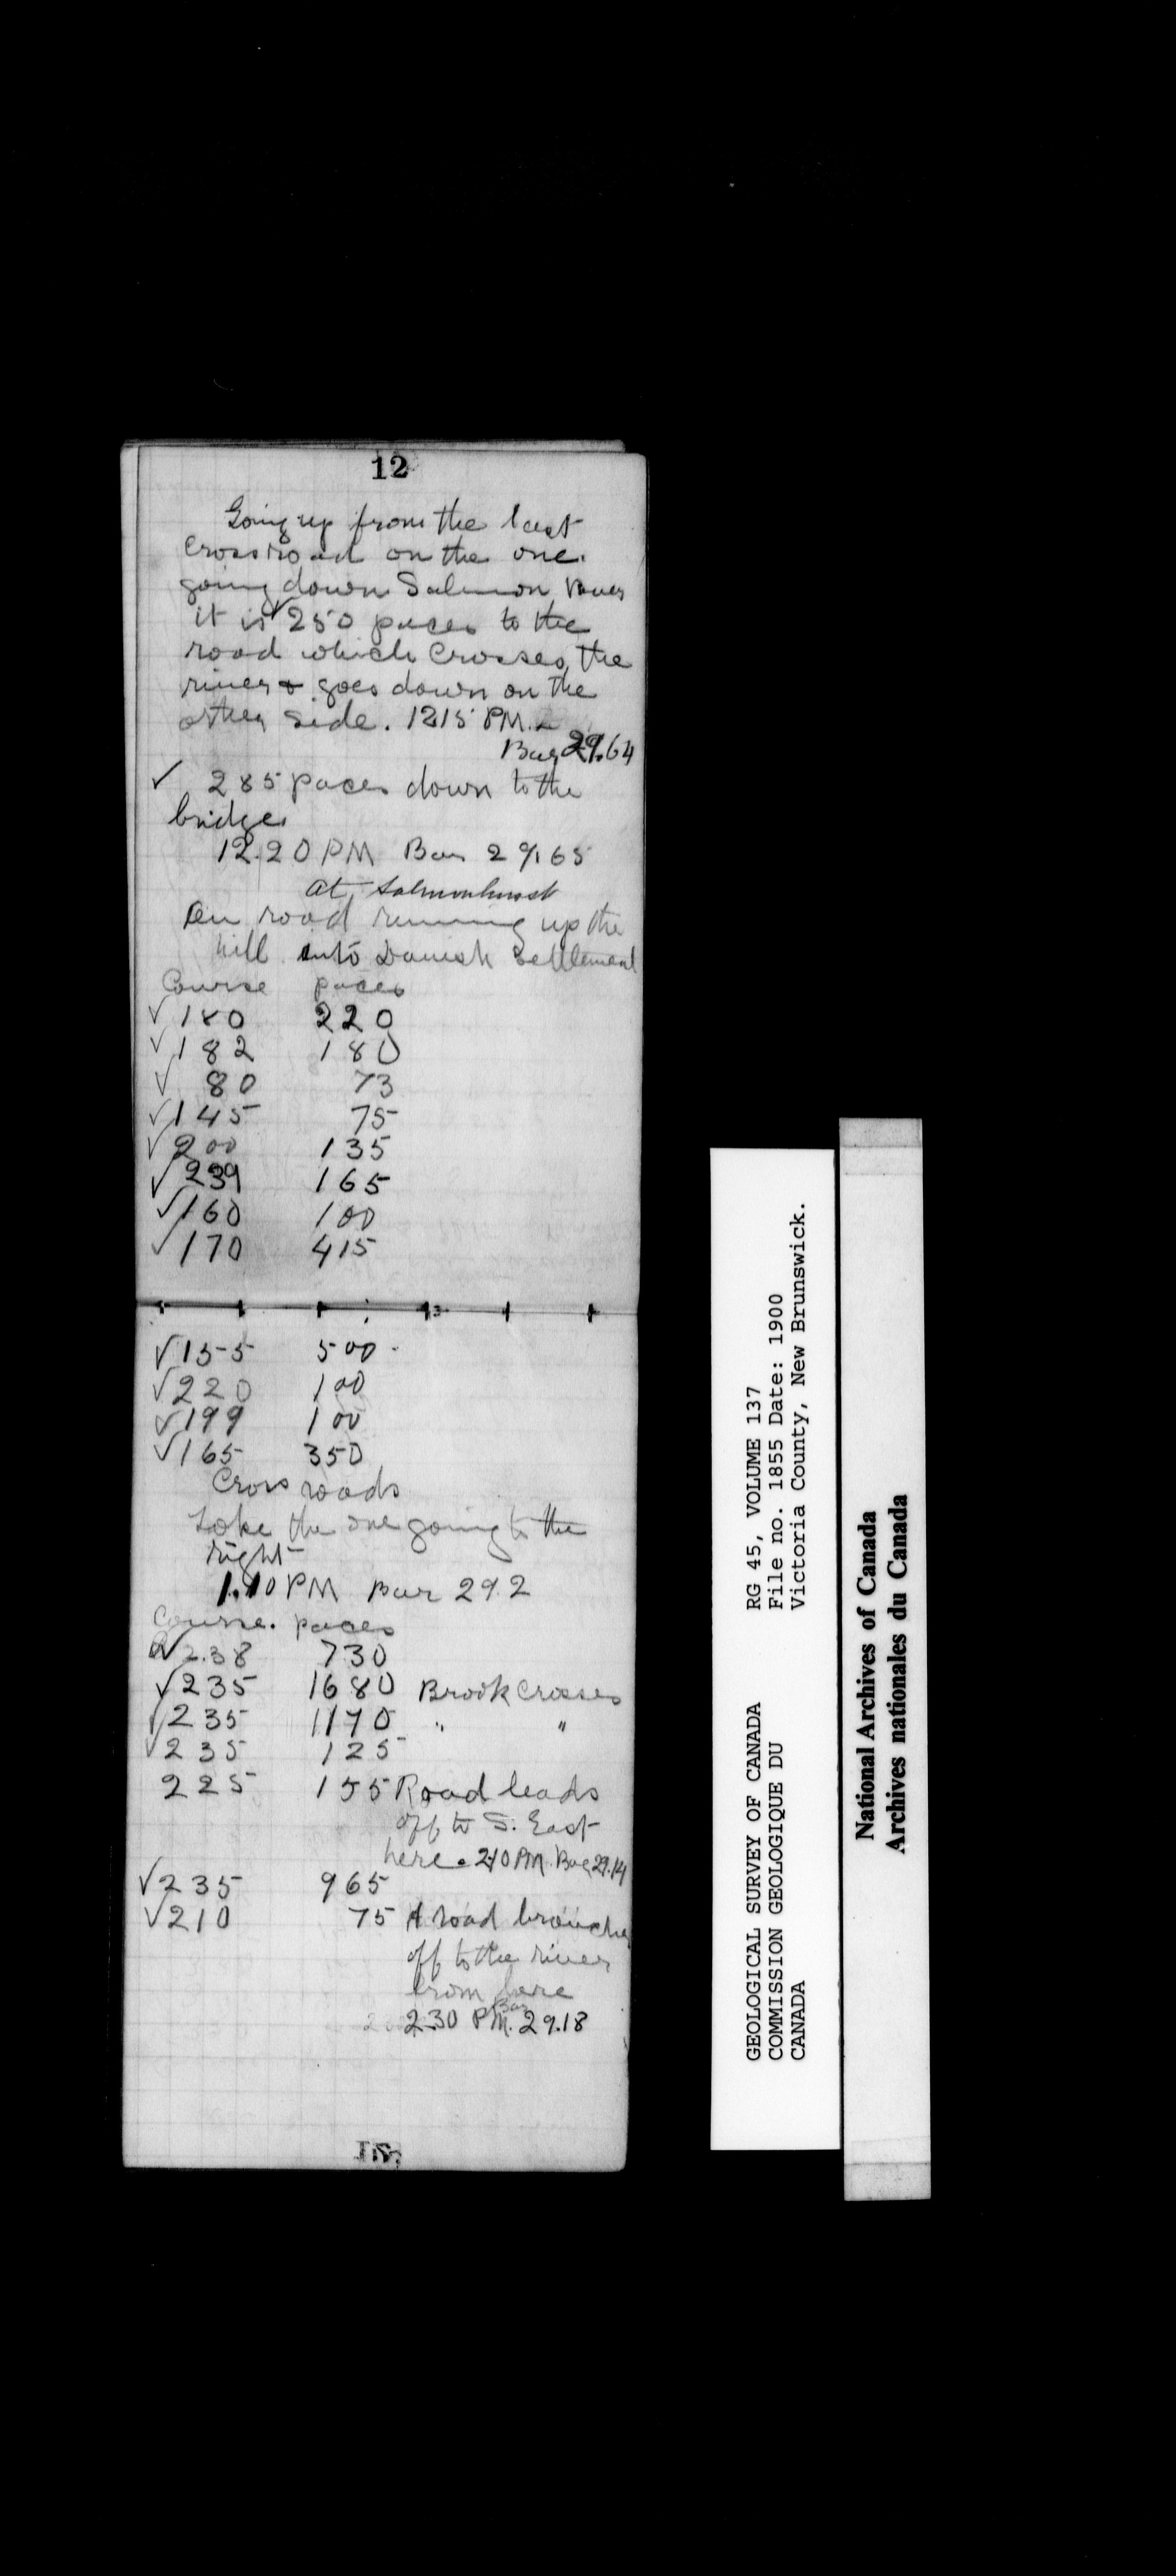 12
Going up from the last
crossroad on the one
going down Salmon River
it is 250 paces to the
road which crosses the
river & goes down on the
other side. 1215 PM.
Bar 29.64
✓ 285 paces down to the
bridge
12.20 PM Bar 29.65
at Salmonhurst
On road running up the
hill into Danish Settlement
Course paces
✓ 180 220
✓ 182 180
✓ 80 73
✓ 145 75
✓ 200 135
✓ 239 165
✓ 160 100
✓ 170 415
✓ 155 500
✓ 220 100
✓ 199 100
✓ 165 350
Cross roads
Take the one going to the
right
1.10 PM Bar 29.2
Course. paces
✓ 238 730
✓ 235 1680 Brook crosses
✓ 235 1170 " "
✓ 235 125
225 155 Road leads
off to S. East
here. 210 PM. Bar 29.14
✓ 235 965
✓ 210 75 A road branches
off to the river
from here
Bar
230 PM. 29.18
GEOLOGICAL SURVEY OF CANADA RG 45, VOLUME 137
COMMISSION GEOLOGIQUE DU File no. 1855 Date: 1900
CANADA Victoria County, New Brunswick.
National Archives of Canada
Archives nationales du Canada